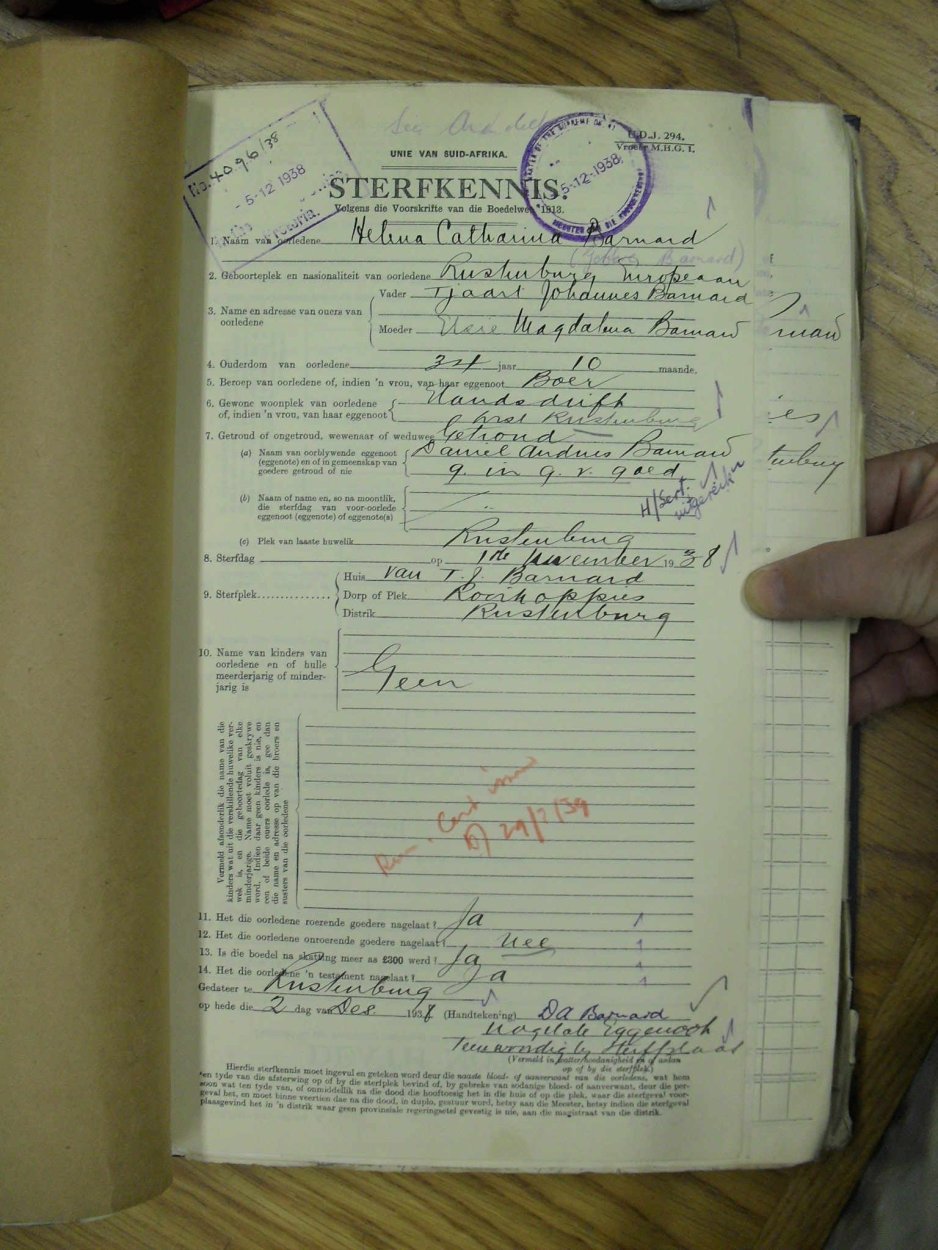 No. 4096/38
- 5-12-1938
Pretoria.
See
MASTER OF THE SUPREME COURT
5-12-1938
U.D.J. 294.
Vroeër M.B.G. 1.
UNIE VAN SUID-AFRIKA.
STERFKENNIS.
Volgens die Voorskrifte van die Boedelwet, 1913.
1. Naam van oorledene Helena Catharina Barnard
(Gebore Barnard)
2. Geboorteplek en nasionaliteit van oorledene Rustenburg Europeaan
3. Name en adresse van ouers van oorledene
Vader Tjaart Johannes Barnard
Moeder Elsie Magdalena Barnard
4. Ouderdom van oorledene 34 jaar 10 maande.
5. Beroep van oorledene of, indien 'n vrou, van haar eggenoot Boer
6. Gewone woonplek van oorledene
of, indien 'n vrou, van haar eggenoot
Handsdrift
Dist Rustenburg
7. Getroud of ongetroud, wewenaar of weduwee Getroud
(a) Naam van oorblywende eggenoot
(eggenote) en of in gemeenskap van
goedere getroud of nie
Daniel Andries Barnard
g. in g. v. goed
(b) Naam of name en, so na moontlik,
die sterfdag van voor-oorlede
eggenoot (eggenote) of eggenote(s)
H/Sert.
uitgereik
(c) Plek van laaste huwelik Rustenburg
8. Sterfdag op 1ste November 1938
9. Sterfplek
Huis van T. J. Barnard
Dorp of Plek Rooikoppies
Distrik Rustenburg
10. Name van kinders van
oorledene en of hulle
meerderjarig of minder-
jarig is
Geen
Vermeld afsonderlik die name van die
kinders wat uit die verskillende huwelike ver-
wek is, en die geboortedag van elke
minderjarige. Name moet voluit geskrywe
word. Indien daar geen kinders is nie, en
een of beide ouers oorlede is, gee dan
die name en adresse op van die broers en
susters van die oorledene
29/7/39
11. Het die oorledene roerende goedere nagelaat? Ja
12. Het die oorledene onroerende goedere nagelaat? Nee
13. Is die boedel na skatting meer as £300 werd? Ja
14. Het die oorledene 'n testament nagelaat? Ja
Gedateer te Rustenburg
op hede die 2 dag van Des 1938 (Handtekening) DA Barnard
Nagelate Eggenoot
Teenwoordig by Sterfplaas
(Vermeld in watter hoedanigheid en of aanwesig
op of by die sterfplek.)
Hierdie sterfkennis moet ingevul en geteken word deur die naaste bloed- of aanverwant van die oorledene, wat hom
ten tyde van die afsterwing op of by die sterfplek bevind of, by gebreke van sodanige bloed- of aanverwant, deur die per-
soon wat ten tyde van, of onmiddellik na die dood die hooftoesig het in die huis of op die plek, waar die sterfgeval voor-
geval het, en moet binne veertien dae na die dood, in duplo, gestuur word, hetsy aan die Meester, hetsy indien die sterfgeval
plaasgevind het in 'n distrik waar geen provinsiale regeringsetel gevestig is nie, aan die magistraat van die distrik.